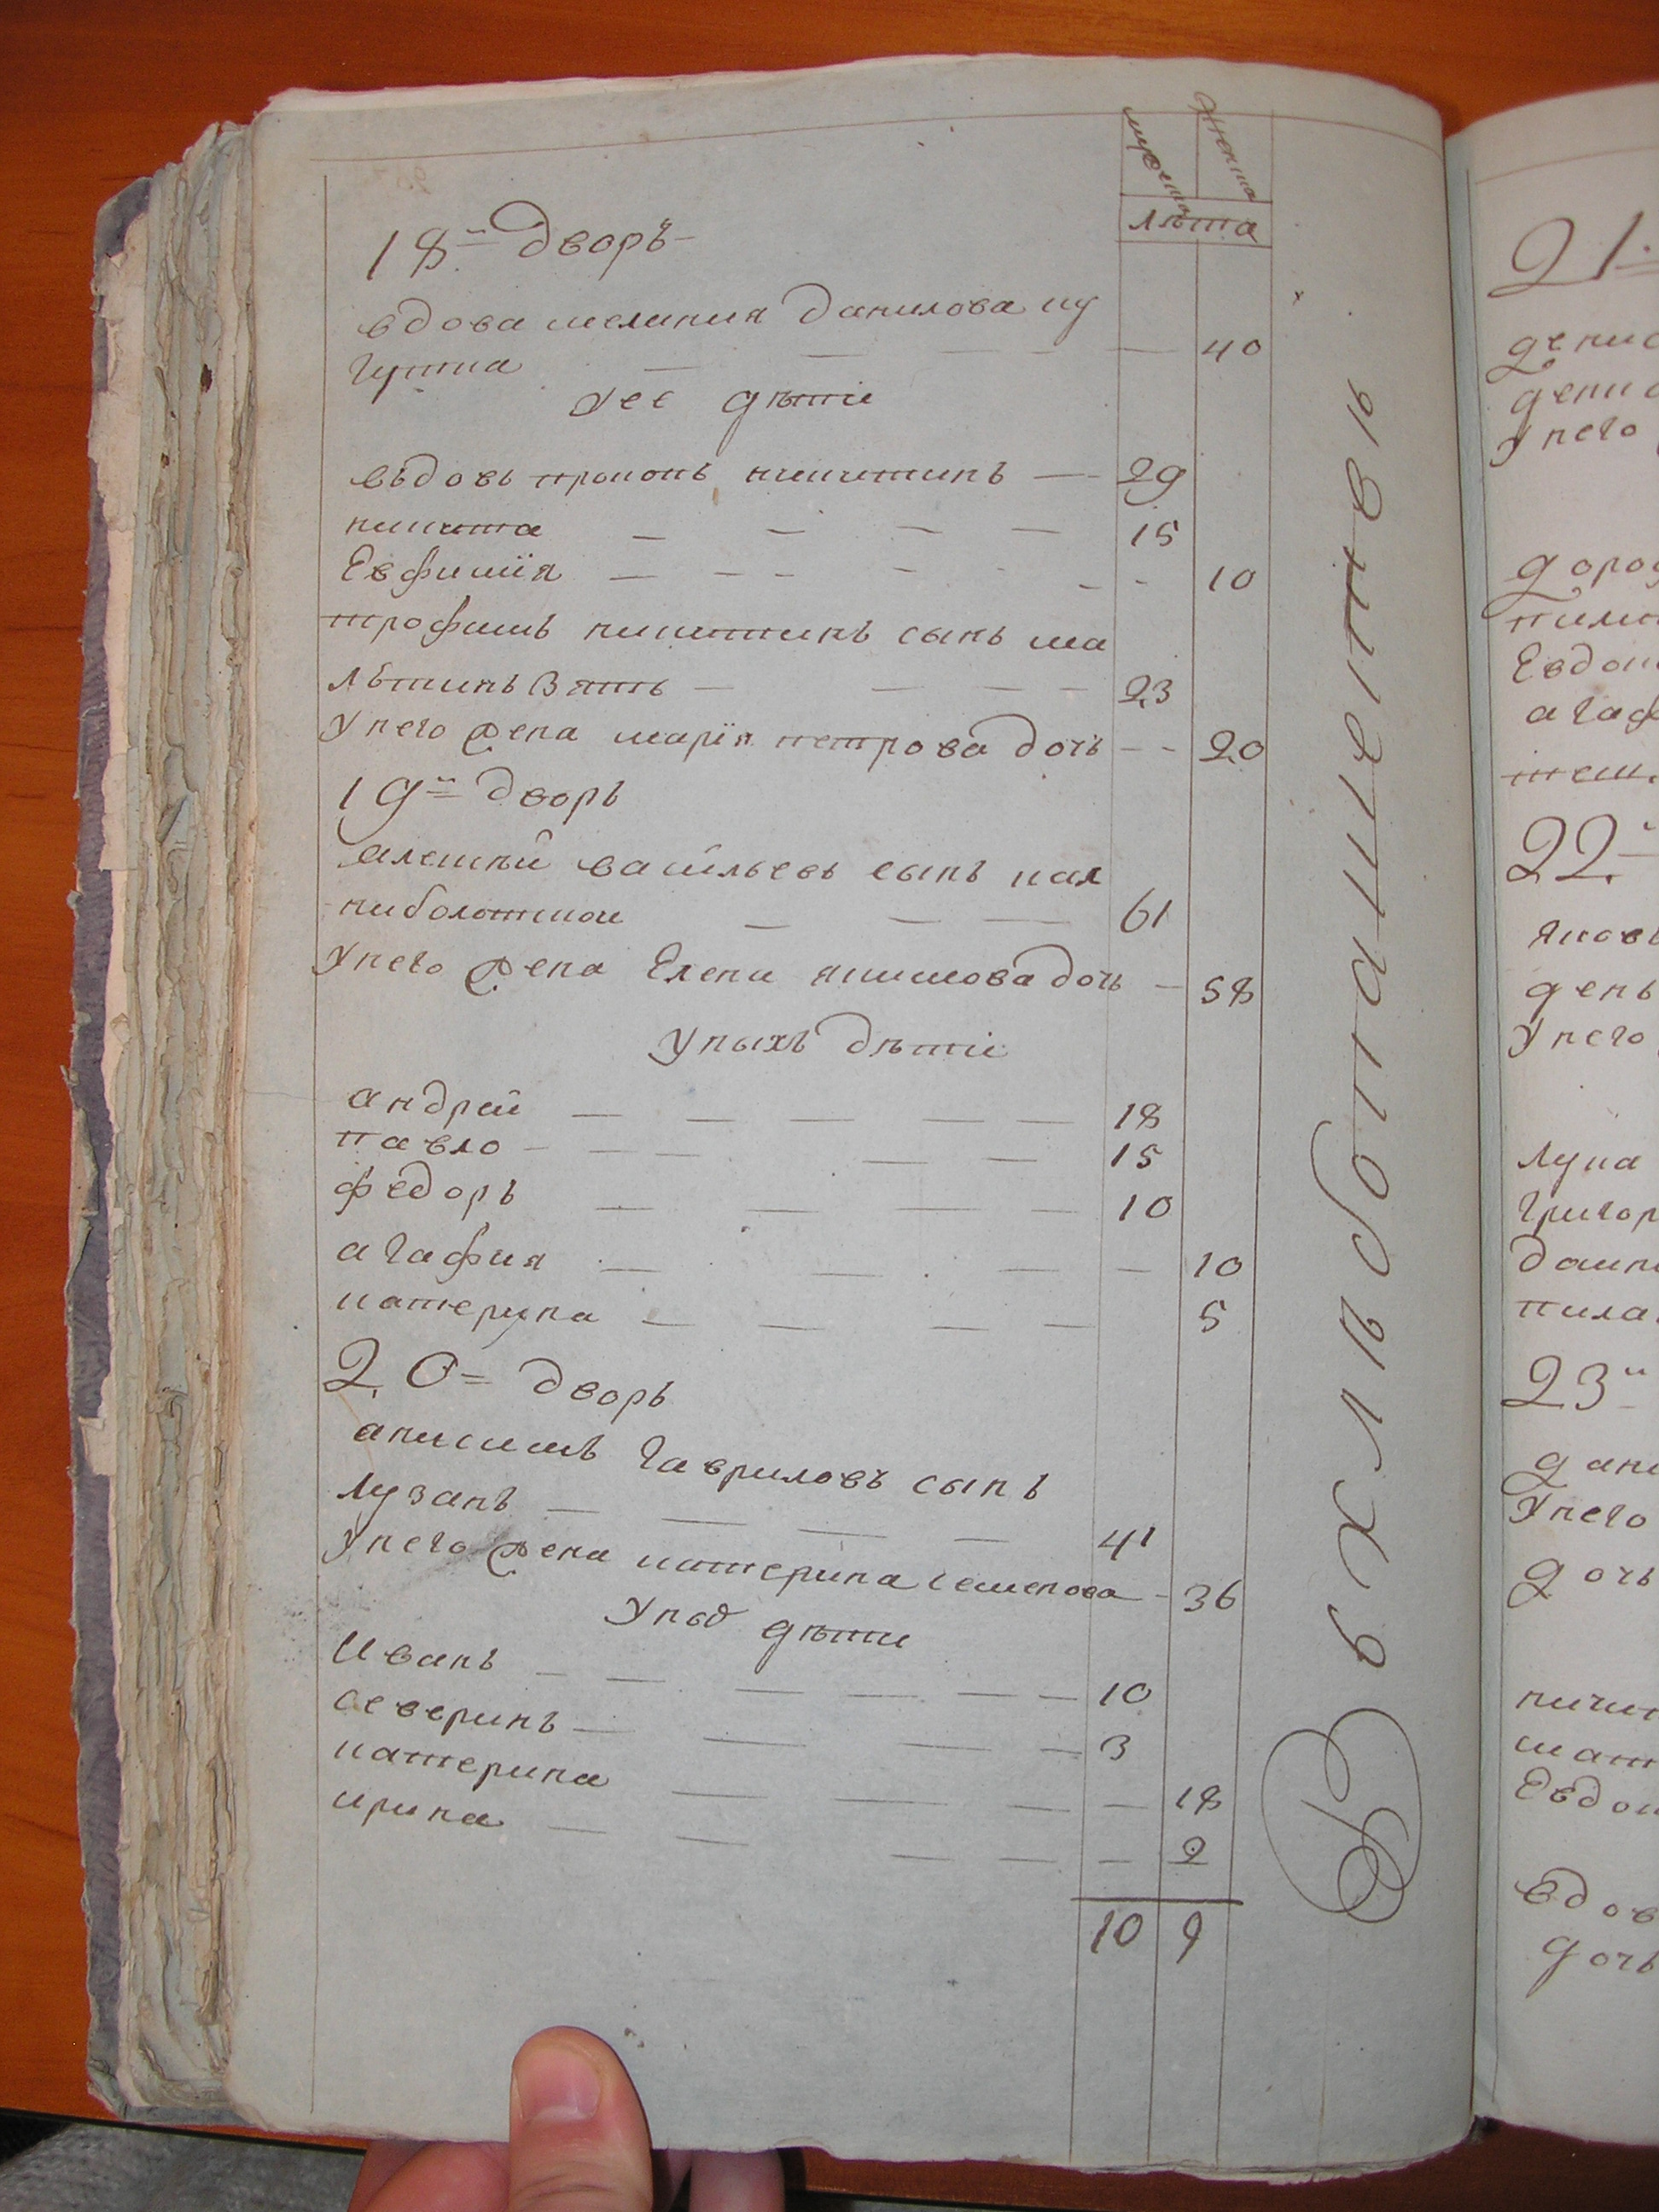 мужеска женска
лѣта
18й дворъ
вдова мелания данилова ку
гутка 40
у ее дѣти
въдовъ прокопъ никитинъ 29
никита 15
Евфимія 10
трофимъ никитинъ сынъ ма
лѣтинъ зять 23
у него жена марія петрова дочь 20
19й дворъ
алексѣй васильевъ сынъ кал
ниболотцкой 61
у него жена Елена якимова дочь 58
у ныхъ дѣти
андрей 18
павло 15
федоръ 10
агафия 10
катерина 5
20 дворъ
анисимъ гавриловъ сынъ
лузанъ 41
у него жена катерина семенова 36
у ных дѣти
Иванъ 10
северинъ 3
катерина 18
ирина 2
10 9
21
денис
дени
у него
доро
Евдок
агаф
22
яковъ
день
у него
лука
григор
23й
у него
дочь
Евдок
вдов
дочь